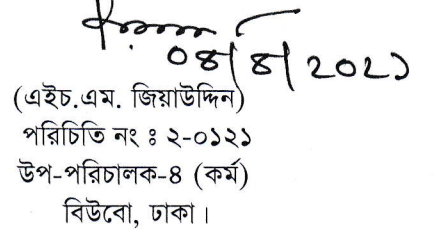 ০৪/৪/২০২১
(এইচ.এম. জিয়াউদ্দিন)
পরিচিতি নং ঃ ২-০১২১
উপ-পরিচালক-৪ (কর্ম)
বিউবো, ঢাকা।